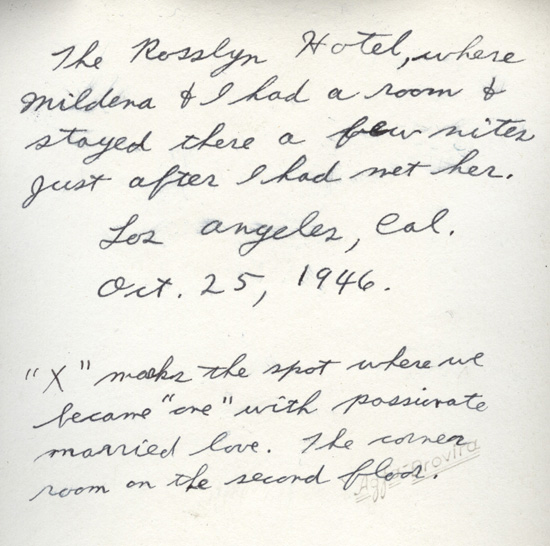 The Rosslyn Hotel, where
Mildena & I had a room &
stayed there a few nites
just after I had met her.
Los Angeles, Cal.
Oct. 25, 1946.
"X" marks the spot where we
became "one" with passionate
married love. The corner
room on the second floor.
Agfa-Brovira